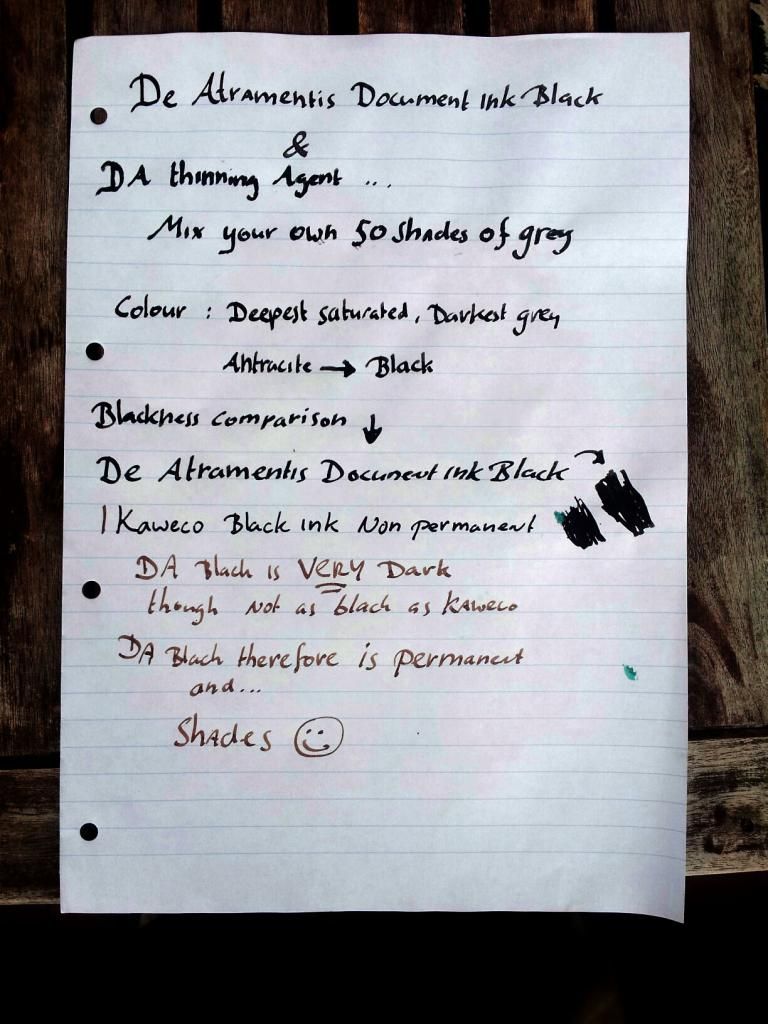 De Atramentis Document Ink Black
&
DA thinning Agent ...
Mix your own 50 shades of grey
Colour : Deepest saturated, Darkest grey
Antracite → Black
Blackness comparison ↓
De Atramentis Document Ink Black
Kaweco Black ink Non permanent
DA Black is VERY Dark
though not as black as Kaweco
DA Black therefore is permanent
and...
Shades ☺